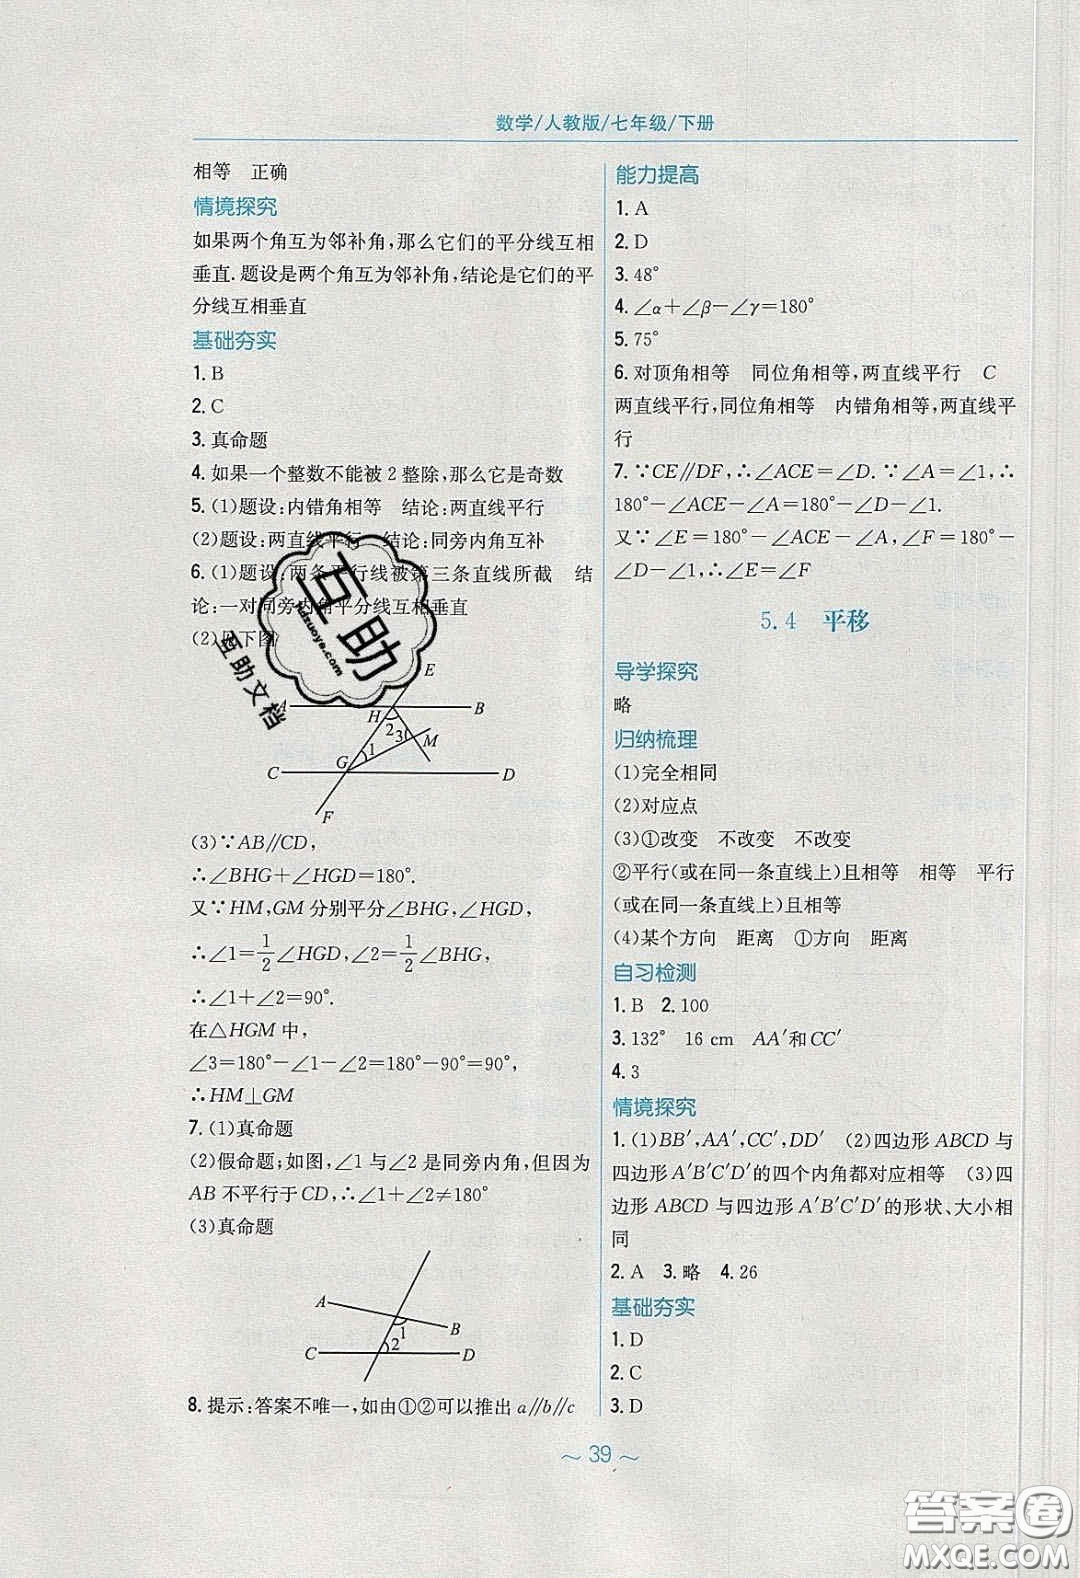 数学/人教版/七年级/下册
相等 正确
情境探究
如果两个角互为邻补角,那么它们的平分线互相
垂直.题设是两个角互为邻补角,结论是它们的平
分线互相垂直
基础夯实
1. B
2. C
3. 真命题
4. 如果一个整数不能被2整除,那么它是奇数
5. (1)题设:内错角相等 结论:两直线平行
(2)题设:两直线平行 结论:同旁内角互补
6. (1)题设:两条平行线被第三条直线所截 结
论:一对同旁内角平分线互相垂直
(2)见下图
E
A
H
B
2
3
M
1
G
C
D
F
(3)∵AB∥CD,
∴∠BHG+∠HGD=180°.
又∵HM,GM分别平分∠BHG,∠HGD,
∴∠1=1/2∠HGD,∠2=1/2∠BHG,
∴∠1+∠2=90°.
在△HGM中,
∠3=180°-∠1-∠2=180°-90°=90°,
∴HM⊥GM
7. (1)真命题
(2)假命题;如图,∠1与∠2是同旁内角,但因为
AB不平行于CD,∴∠1+∠2≠180°
(3)真命题
A
1
B
C
2
D
8. 提示:答案不唯一,如由①②可以推出a∥b∥c
能力提高
1. A
2. D
3. 48°
4. ∠α+∠β-∠γ=180°
5. 75°
6. 对顶角相等 同位角相等,两直线平行 C
两直线平行,同位角相等 内错角相等,两直线平
行
7. ∵CE∥DF,∴∠ACE=∠D.∵∠A=∠1,∴
180°-∠ACE-∠A=180°-∠D-∠1.
又∵∠E=180°-∠ACE-∠A,∠F=180°-
∠D-∠1,∴∠E=∠F
5.4 平移
导学探究
略
归纳梳理
(1)完全相同
(2)对应点
(3)①改变 不改变 不改变
②平行(或在同一条直线上)且相等 相等 平行
(或在同一条直线上)且相等
(4)某个方向 距离 ①方向 距离
自习检测
1. B 2. 100
3. 132° 16 cm AA′和CC′
4. 3
情境探究
1. (1)BB′,AA′,CC′,DD′ (2)四边形ABCD与
四边形A′B′C′D′的四个内角都对应相等 (3)四
边形ABCD与四边形A′B′C′D′的形状、大小相
同
2. A 3. 略 4. 26
基础夯实
1. D
2. C
3. D
~ 39 ~
互助
hdzuoye.com
互助文档
答案圈
MXQE.COM